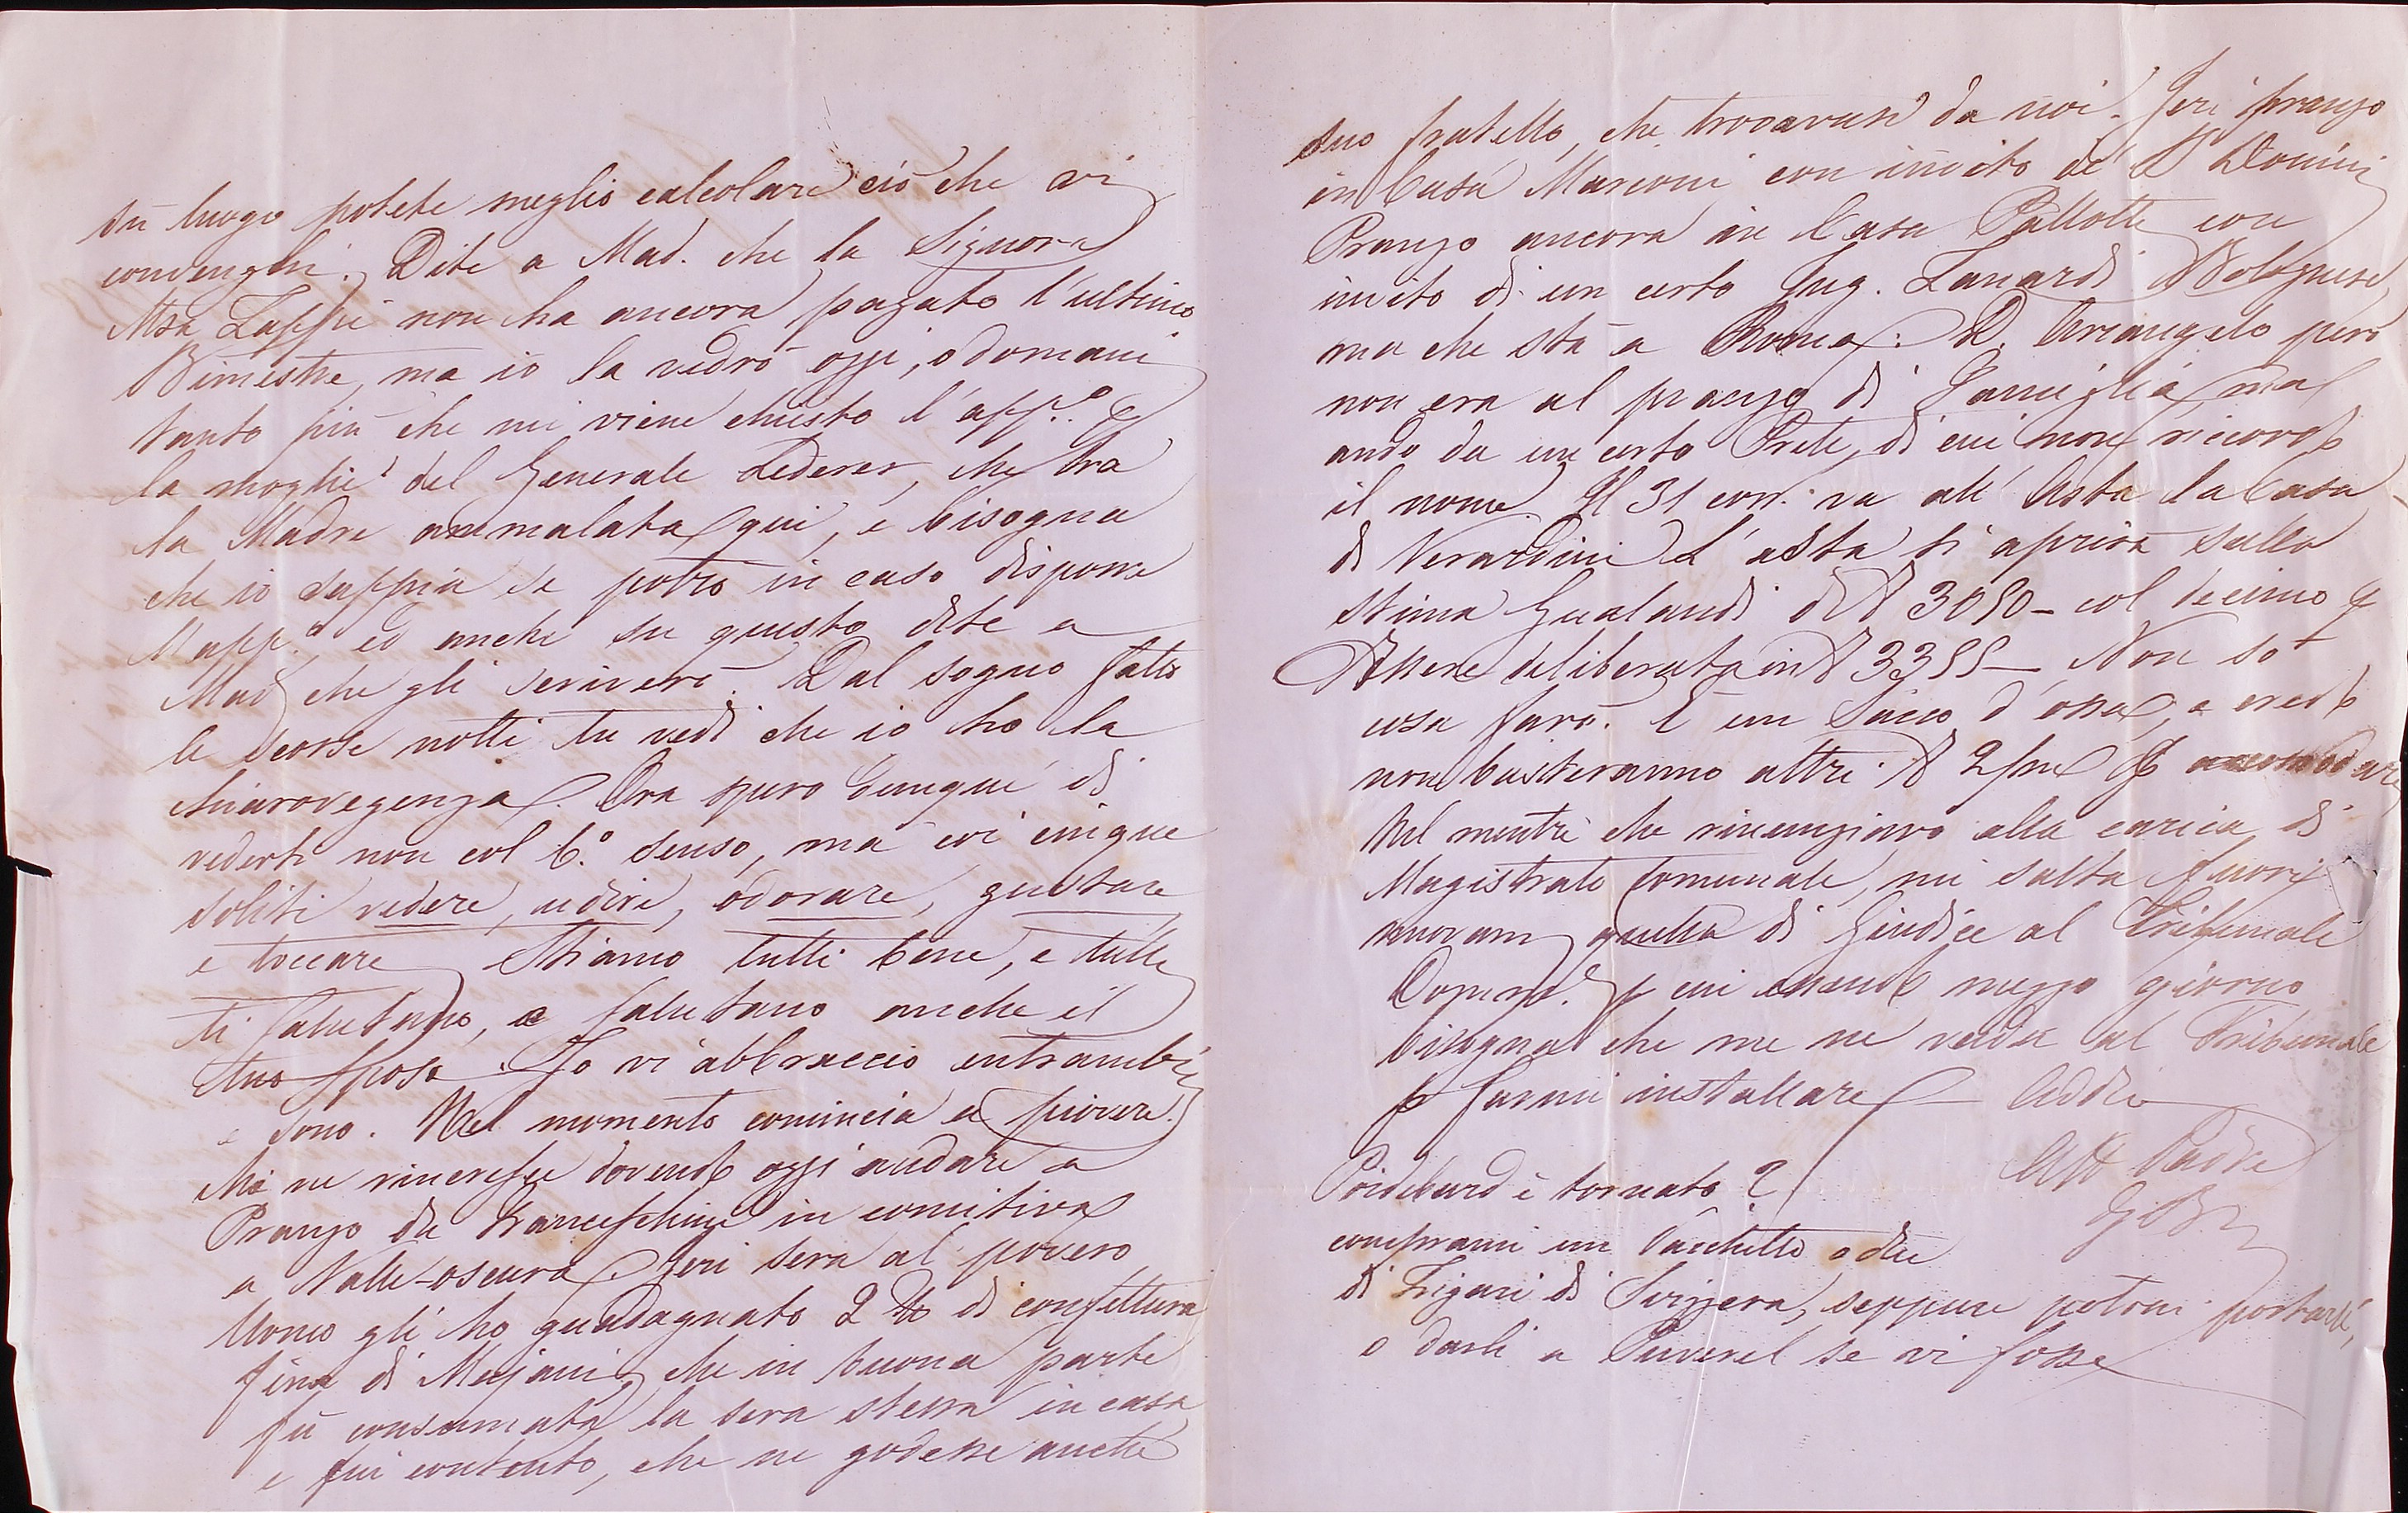 su luogo potete meglio calcolare ciò che vi
convenghi. Dite a Mad. che la Signora
Msa Zappi non ha ancora pagato l'ultimo
Bimestre, ma io la vedrò oggi, o domani
tanto più che mi viene chiesto l'app.º
la moglie del Generale Lederer, che ha
la Madre ammalata qui, e bisogna
che io sappia se potrò in caso disporre
l'app.º ed anche su questo dite a
Mad che gli scriverò. Dal sogno fatto
le scorse notti tu vedi che io ho la
chiaroveggenza. Ora spero dunque di
vederti non col 6.º senso, ma coi cinque
soliti vedere, udire, odorare, gustare
e toccare Stiamo tutti bene, e tutti
ti salutano, e salutano anche il
tuo sposo. Io vi abbraccio entrambi
e sono. Nel momento comincia a piovere.
Me ne rincresce dovendo oggi andare a
Pranzo da Franceschini in comitiva
a Valle-oscura. Jeri sera al povero
Uomo gli ho guadagnato 2 ℔ di confettura
fina di Majani, che in buona parte
fù consumata la sera stessa in casa
e fui contento, che ne godesse anche
suo fratello, che trovavasi da noi. Jeri pranzo
in Casa Marconi con invito de' Domini
Pranzo ancora in Casa Pallotti con
invito di un certo Ing. Zanardi Bolognese
ma che stà a Roma. D. Arcangelo però
non era al pranzo di Famiglia, ma
andò da un certo Prete, di cui non ricordo
il nome. Il 31 corr. va all'Asta la Casa
di Verardini L'asta si aprirà sulla
stima Gualandi di 3050 – col decimo
Essere deliberata in 3355 – Non sò
cosa farò. È un Sacco d'ossa, e credo
non basteranno altri 2/m accomodare
Nel mentre che rinunziavo alla carica di
Magistrato Comunale, mi salta fuori
nuovam quella di Giudice al Tribunale
cui essendo mezzo giorno
bisogna che me ne vada al Tribunale
p farmi installare – Addio
Aff Padre
è tornato?
comprami un Pacchetto o due
di Zigari di Svizzera, seppure potrai portarli,
o darli a se vi fosse